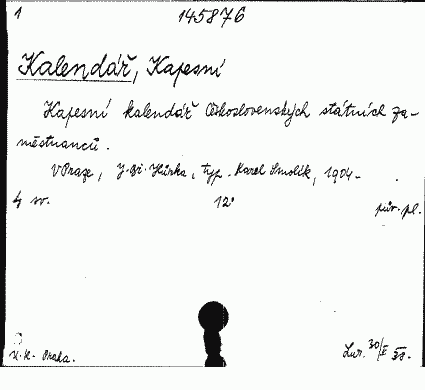 1 145876
Kalendář, Kapesní
Kapesní kalendář Československých státních za-
městnanců.
V Praze, J. Hůrka, typ. Karel Smolík, 1904-
4 sv. 12° pův. pl.
U.K. Praha. Lur. 30/X 38.